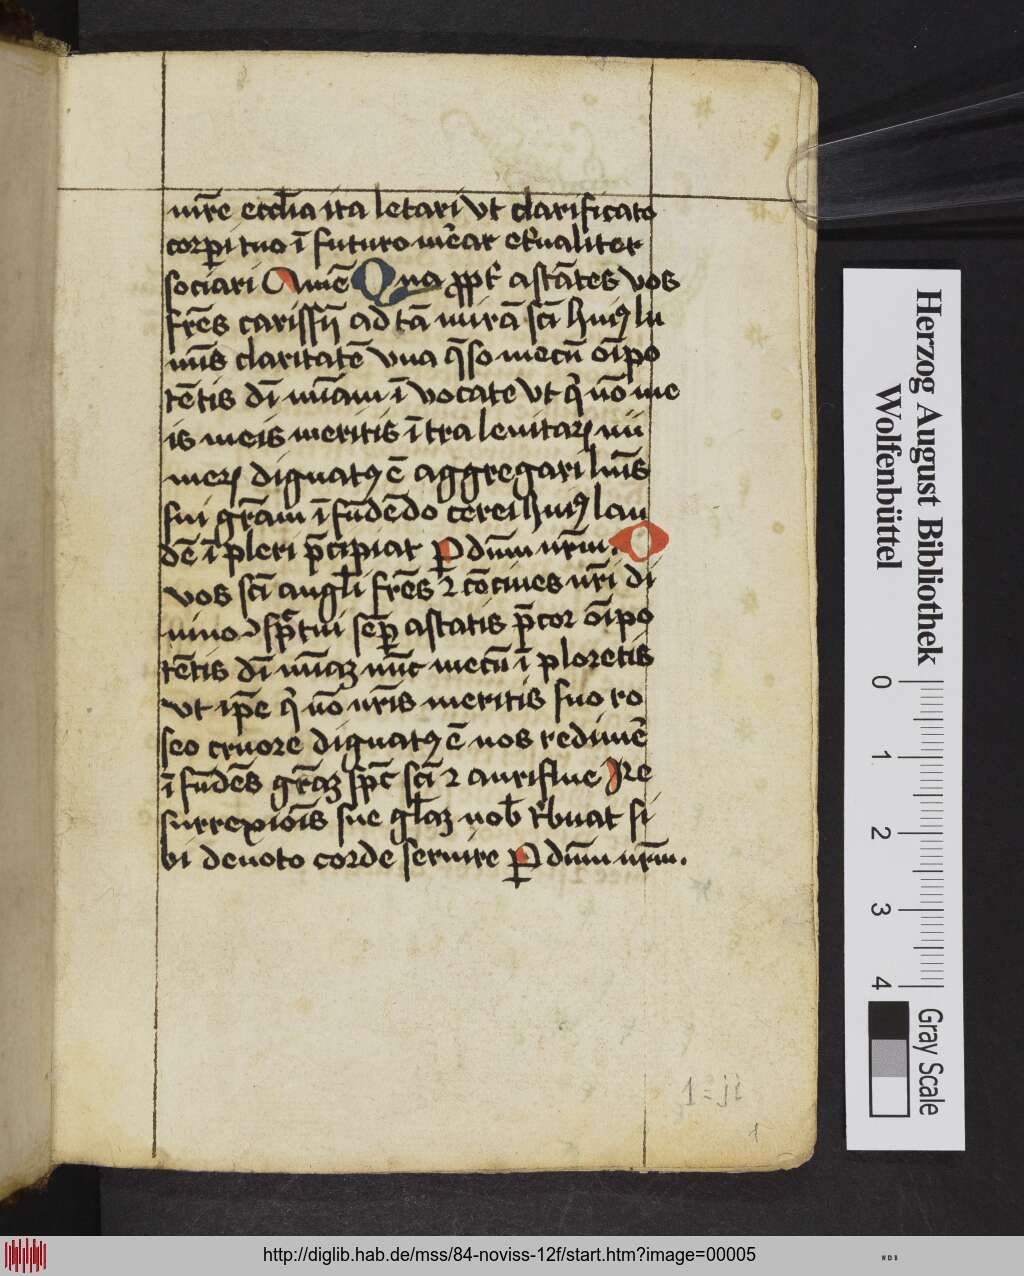 nūre eccl̄ia ita letari vt clarificato
corpi tuo ī futuro mēar et̄ualiter
sociari Amē Qua ꝓpt̄ astātes vos
frēs carissīj ad tā mirā sc̄i huiꝰ lu
mīs claritatē vna q̄so mecū oīpo
tētis dī mīam ī vocate vt q̄ nō me
is meis meritis ī tra leuitaꝝ nu
meꝝ dignatꝰ ē aggregari luīs
sui grām ī fūdēdo cerei huiꝰ lau
dē ī pleri p̄cipiat P dūm nr̄m. O
vos sc̄i angl̄i frēs ⁊ cōciues nr̄i di
uino sp̄ tui sēꝑ astatis p̄cor oīpo
tētis dī mīaꝫ nūc mecū ī ploretis
vt ip̄e q̄ nō nr̄is meritis suo ro
seo cruore dignatꝰ ē nos redimē
ī fūdēs grāꝫ sp̄c sc̄i ⁊ auriflue Jre
surrexiōis sue gl̄aꝫ nob̄ t̄buat si
bi deuoto corde seruire P dūm nr̄m.
1=ji
1
Herzog August Bibliothek
Wolfenbüttel
0 1 2 3 4
Gray Scale
http://diglib.hab.de/mss/84-noviss-12f/start.htm?image=00005